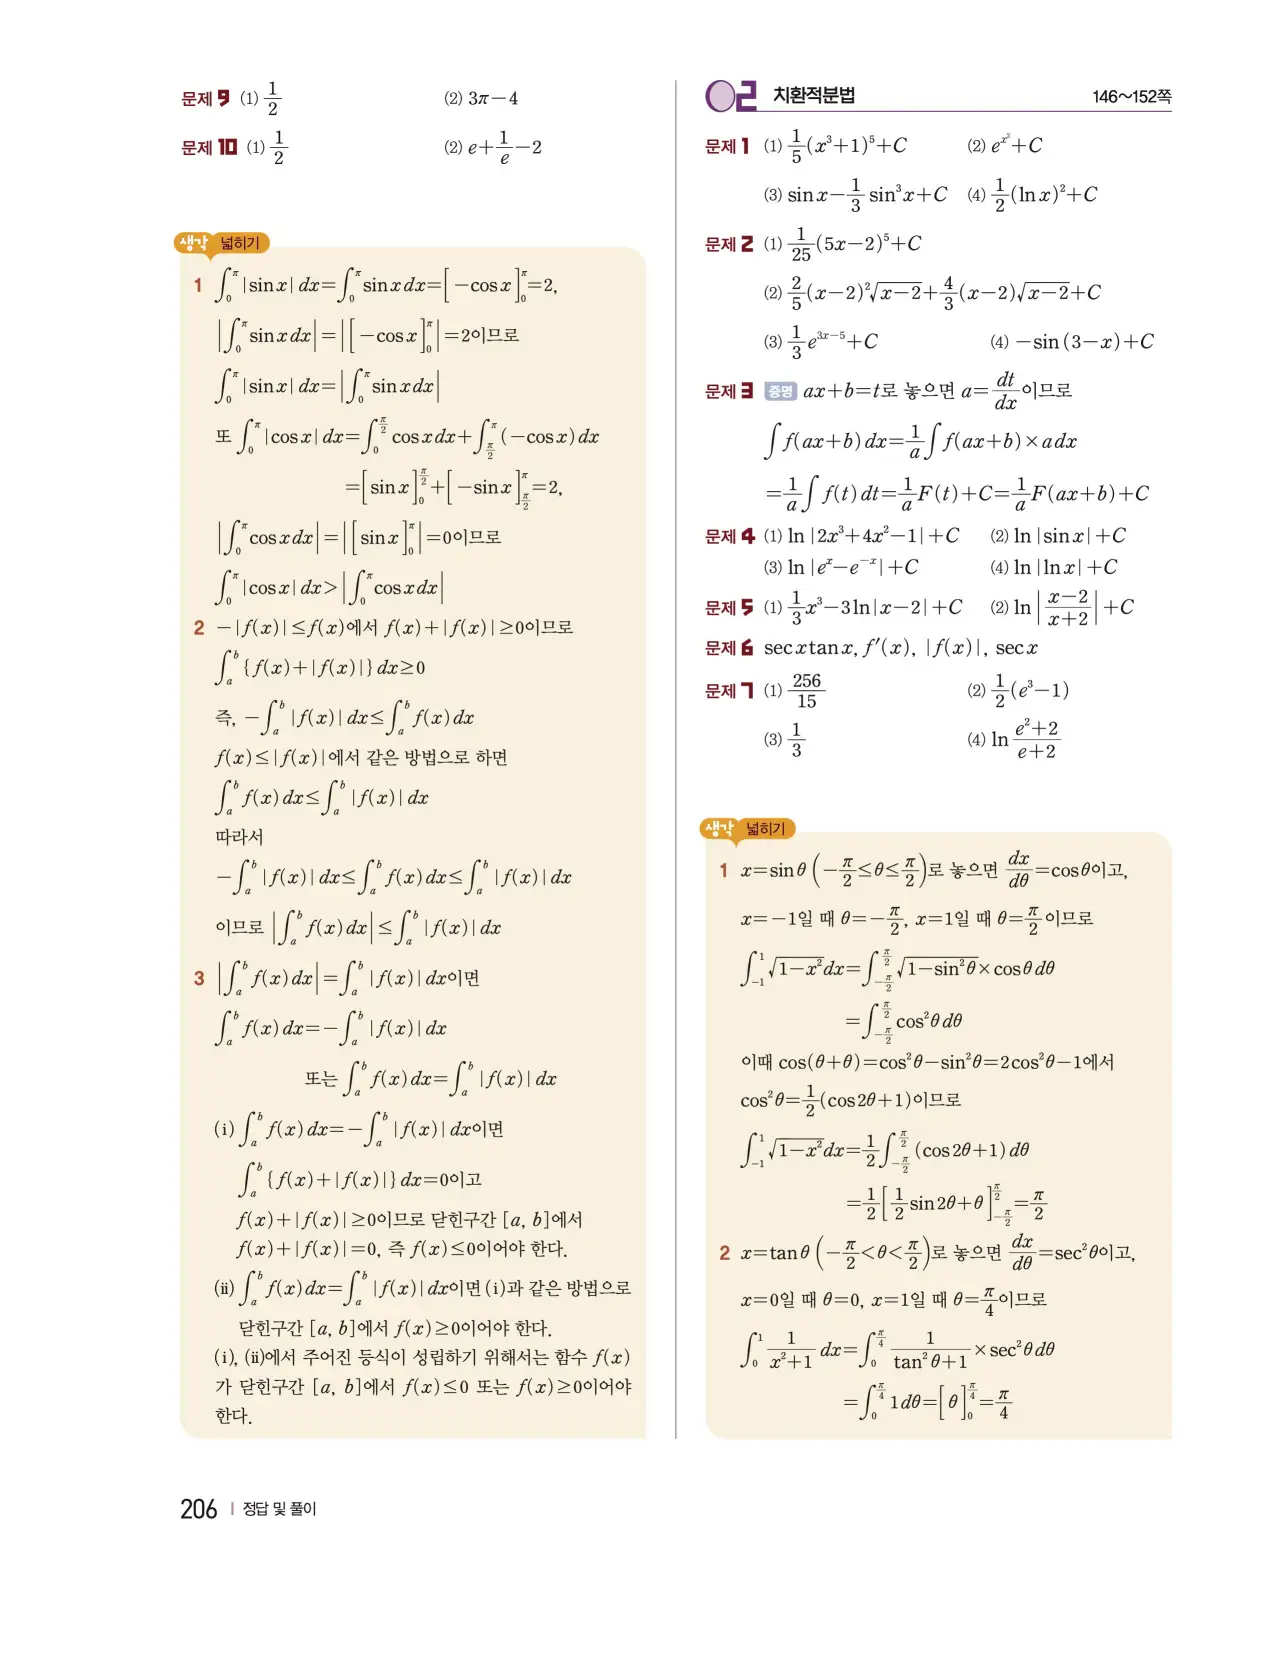 문제 9 (1) 1/2 (2) 3π－4
문제 10 (1) 1/2 (2) e＋1/e－2
생각 넓히기
1 ∫₀^π |sin x| dx＝∫₀^π sin x dx＝[－cos x]₀^π＝2,
|∫₀^π sin x dx|＝|[－cos x]₀^π|＝2이므로
∫₀^π |sin x| dx＝|∫₀^π sin x dx|
또 ∫₀^π |cos x| dx＝∫₀^{π/2} cos x dx＋∫_{π/2}^π (－cos x) dx
＝[sin x]₀^{π/2}＋[－sin x]_{π/2}^π＝2,
|∫₀^π cos x dx|＝|[sin x]₀^π|＝0이므로
∫₀^π |cos x| dx＞|∫₀^π cos x dx|
2 －|f(x)|≤f(x)에서 f(x)＋|f(x)|≥0이므로
∫ₐ^b {f(x)＋|f(x)|} dx≥0
즉, －∫ₐ^b |f(x)| dx≤∫ₐ^b f(x) dx
f(x)≤|f(x)|에서 같은 방법으로 하면
∫ₐ^b f(x) dx≤∫ₐ^b |f(x)| dx
따라서
－∫ₐ^b |f(x)| dx≤∫ₐ^b f(x) dx≤∫ₐ^b |f(x)| dx
이므로 |∫ₐ^b f(x) dx|≤∫ₐ^b |f(x)| dx
3 |∫ₐ^b f(x) dx|＝∫ₐ^b |f(x)| dx이면
∫ₐ^b f(x) dx＝－∫ₐ^b |f(x)| dx
또는 ∫ₐ^b f(x) dx＝∫ₐ^b |f(x)| dx
(ⅰ) ∫ₐ^b f(x) dx＝－∫ₐ^b |f(x)| dx이면
∫ₐ^b {f(x)＋|f(x)|} dx＝0이고
f(x)＋|f(x)|≥0이므로 닫힌구간 [a, b]에서
f(x)＋|f(x)|＝0, 즉 f(x)≤0이어야 한다.
(ⅱ) ∫ₐ^b f(x) dx＝∫ₐ^b |f(x)| dx이면 (ⅰ)과 같은 방법으로
닫힌구간 [a, b]에서 f(x)≥0이어야 한다.
(ⅰ), (ⅱ)에서 주어진 등식이 성립하기 위해서는 함수 f(x)
가 닫힌구간 [a, b]에서 f(x)≤0 또는 f(x)≥0이어야
한다.
206 정답 및 풀이
02 치환적분법 146~152쪽
문제 1 (1) 1/5(x³＋1)⁵＋C (2) e^{x²}＋C
(3) sin x－1/3 sin³x＋C (4) 1/2(ln x)²＋C
문제 2 (1) 1/25(5x－2)⁵＋C
(2) 2/5(x－2)²√(x－2)＋4/3(x－2)√(x－2)＋C
(3) 1/3 e^{3x－5}＋C (4) －sin (3－x)＋C
문제 3 증명 ax＋b＝t로 놓으면 a＝dt/dx이므로
∫f(ax＋b) dx＝1/a ∫f(ax＋b)×a dx
＝1/a ∫f(t) dt＝1/a F(t)＋C＝1/a F(ax＋b)＋C
문제 4 (1) ln |2x³＋4x²－1|＋C (2) ln |sin x|＋C
(3) ln |e^x－e^{－x}|＋C (4) ln |ln x|＋C
문제 5 (1) 1/3 x³－3 ln |x－2|＋C (2) ln |(x－2)/(x＋2)|＋C
문제 6 sec x tan x, f′(x), |f(x)|, sec x
문제 7 (1) 256/15 (2) 1/2(e³－1)
(3) 1/3 (4) ln (e²＋2)/(e＋2)
생각 넓히기
1 x＝sin θ (－π/2≤θ≤π/2)로 놓으면 dx/dθ＝cos θ이고,
x＝－1일 때 θ＝－π/2, x＝1일 때 θ＝π/2이므로
∫_{－1}^1 √(1－x²) dx＝∫_{－π/2}^{π/2} √(1－sin²θ)×cos θ dθ
＝∫_{－π/2}^{π/2} cos²θ dθ
이때 cos (θ＋θ)＝cos²θ－sin²θ＝2cos²θ－1에서
cos²θ＝1/2(cos 2θ＋1)이므로
∫_{－1}^1 √(1－x²) dx＝1/2 ∫_{－π/2}^{π/2} (cos 2θ＋1) dθ
＝1/2 [1/2 sin 2θ＋θ]_{－π/2}^{π/2}＝π/2
2 x＝tan θ (－π/2＜θ＜π/2)로 놓으면 dx/dθ＝sec²θ이고,
x＝0일 때 θ＝0, x＝1일 때 θ＝π/4이므로
∫₀^1 1/(x²＋1) dx＝∫₀^{π/4} 1/(tan²θ＋1)×sec²θ dθ
＝∫₀^{π/4} 1 dθ＝[θ]₀^{π/4}＝π/4